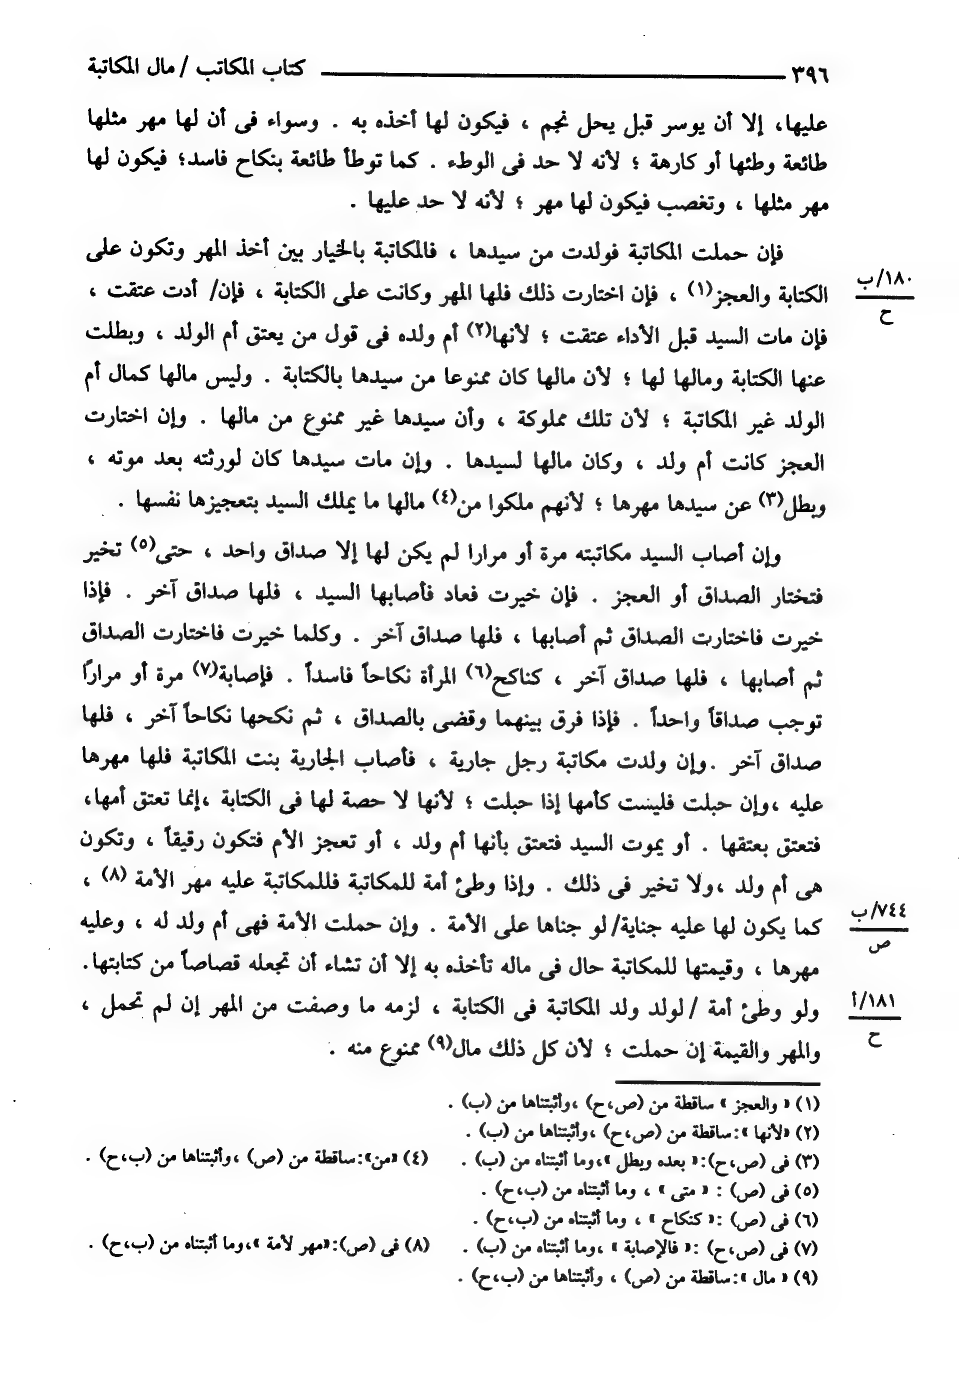 ٣٩٦ ــــــــــ كتاب المكاتب / مال المكاتبة
عليها، إلا أن يوسر قبل يحل نجم ، فيكون لها أخذه به . وسواء فى أن لها مهر مثلها
طائعة وطئها أو كارهة ؛ لأنه لا حد فى الوطء . كما توطأ طائعة بنكاح فاسد؛ فيكون لها
مهر مثلها ، وتغصب فيكون لها مهر ؛ لأنه لا حد عليها .
فإن حملت المكاتبة فولدت من سيدها ، فالمكاتبة بالخيار بين أخذ المهر وتكون على
١٨٠/ب
ح
الكتابة والعجز(١) ، فإن اختارت ذلك فلها المهر وكانت على الكتابة ، فإن/ أدت عتقت ،
فإن مات السيد قبل الأداء عتقت ؛ لأنها(٢) أم ولده فى قول من يعتق أم الولد ، وبطلت
عنها الكتابة ومالها لها ؛ لأن مالها كان ممنوعا من سيدها بالكتابة . وليس مالها كمال أم
الولد غير المكاتبة ؛ لأن تلك مملوكة ، وأن سيدها غير ممنوع من مالها . وإن اختارت
العجز كانت أم ولد ، وكان مالها لسيدها . وإن مات سيدها كان لورثته بعد موته ،
وبطل(٣) عن سيدها مهرها ؛ لأنهم ملكوا من(٤) مالها ما يملك السيد بتعجيزها نفسها .
وإن أصاب السيد مكاتبته مرة أو مرارا لم يكن لها إلا صداق واحد ، حتى(٥) تخير
فتختار الصداق أو العجز . فإن خيرت فعاد فأصابها السيد ، فلها صداق آخر . فإذا
خيرت فاختارت الصداق ثم أصابها ، فلها صداق آخر . وكلما خيرت فاختارت الصداق
ثم أصابها ، فلها صداق آخر ، كناكح(٦) المرأة نكاحاً فاسداً . فإصابة(٧) مرة أو مراراً
توجب صداقاً واحداً . فإذا فرق بينهما وقضى بالصداق ، ثم نكحها نكاحاً آخر ، فلها
صداق آخر .وإن ولدت مكاتبة رجل جارية ، فأصاب الجارية بنت المكاتبة فلها مهرها
عليه ،وإن حبلت فليست كأمها إذا حبلت ؛ لأنها لا حصة لها فى الكتابة ،إنما تعتق أمها،
فتعتق بعتقها . أو يموت السيد فتعتق بأنها أم ولد ، أو تعجز الأم فتكون رقيقاً ، وتكون
هى أم ولد ،ولا تخير فى ذلك . وإذا وطئ أمة للمكاتبة فللمكاتبة عليه مهر الأمة (٨) ،
٧٤٤/ب
ص
كما يكون لها عليه جناية/ لو جناها على الأمة . وإن حملت الأمة فهى أم ولد له ، وعليه
مهرها ، وقيمتها للمكاتبة حال فى ماله تأخذه به إلا أن تشاء أن تجعله قصاصاً من كتابتها.
١٨١/أ
ح
ولو وطئ أمة / لولد ولد المكاتبة فى الكتابة ، لزمه ما وصفت من المهر إن لم تحمل ،
والمهر والقيمة إن حملت ؛ لأن كل ذلك مال(٩) ممنوع منه .
(١) « والعجز » ساقطة من (ص،ح) ،وأثبتناها من (ب) .
(٢) «لأنها »:ساقطة من (ص،ح) ،وأثبتناها من (ب) .
(٣) فى (ص،ح):« بعده وبطل »،وما أثبتناه من (ب) . (٤) «من»:ساقطة من (ص) ،وأثبتناها من (ب،ح) .
(٥) فى (ص) : « متى » ، وما أثبتناه من (ب،ح) .
(٦) فى (ص) :« كنكاح » ، وما أثبتناه من (ب،ح) .
(٧) فى (ص،ح) :« فالإصابة » ،وما أثبتناه من (ب) . (٨) فى (ص):«مهر لأمة »،وما أثبتناه من (ب،ح) .
(٩) « مال »:ساقطة من (ص) ، وأثبتناها من (ب،ح) .